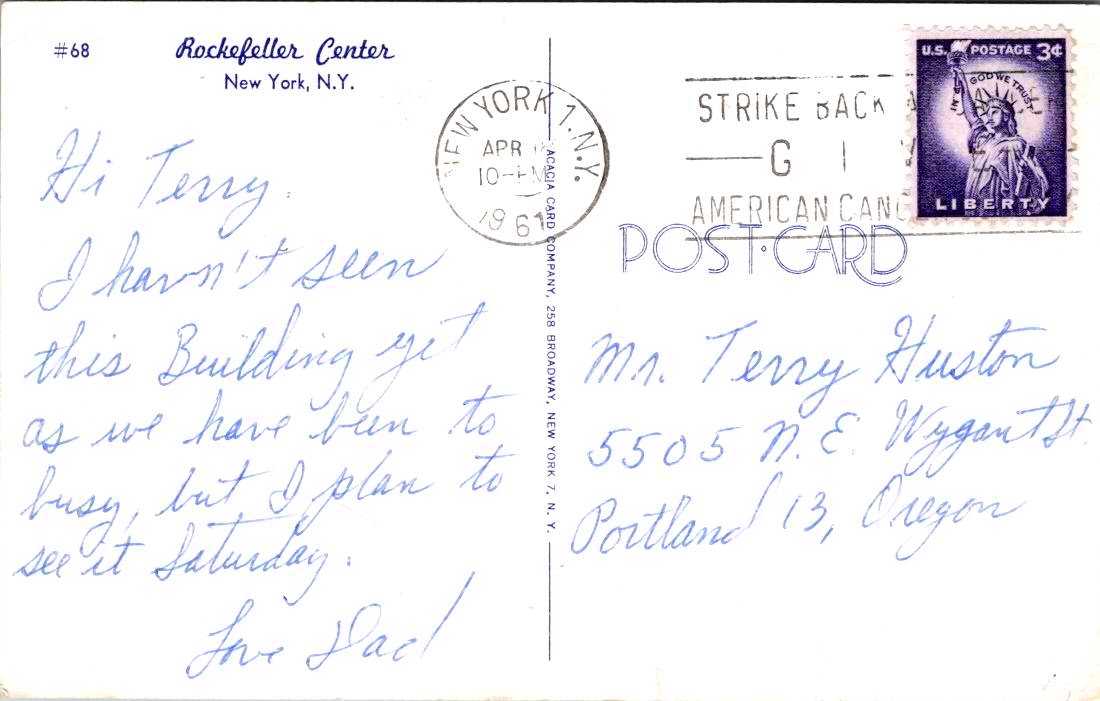 #68
Rockefeller Center
New York, N.Y.
Hi Terry.
I havn't seen
this Building yet
as we have been to
busy, but I plan to
see it Saturday.
Love Dad
NEW YORK 1, N.Y.
APR
10-PM
1961
ACACIA CARD COMPANY, 258 BROADWAY, NEW YORK 7, N. Y.
STRIKE BACK
G I
AMERICAN CANC
U.S. POSTAGE 3¢
IN GOD WE TRUST
LIBERTY
POST CARD
Mr. Terry Huston
5505 N.E. Wygant St.
Portland 13, Oregon